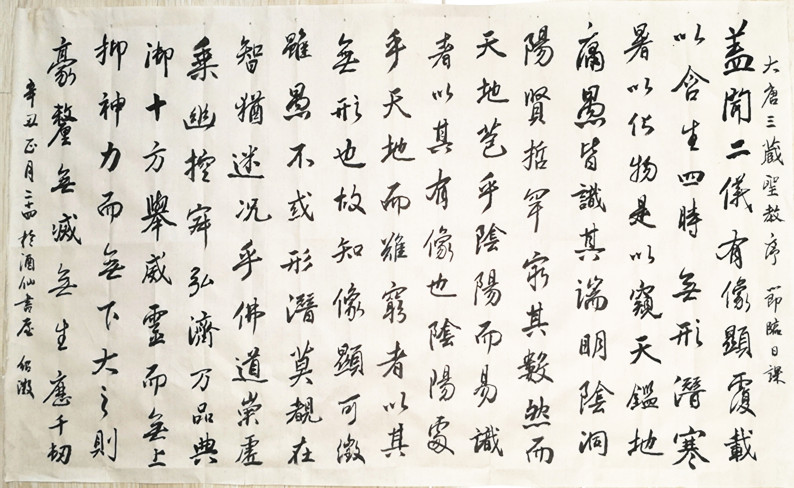 大唐三藏聖教序 節臨日課
蓋聞二儀有像顯覆載
以含生四時無形潛寒
暑以化物是以窺天鑑地
庸愚皆識其端明陰洞
陽賢哲罕窮其數然而
天地苞乎陰陽而易識
者以其有像也陰陽處
乎天地而難窮者以其
無形也故知像顯可徵
雖愚不或形潛莫覩在
智猶迷況乎佛道崇虛
乘幽控寂弘濟万品典
御十方舉威靈而無上
抑神力而無下大之則
豪釐無滅無生歷千劫
辛丑正月二十四於酒仙書屋